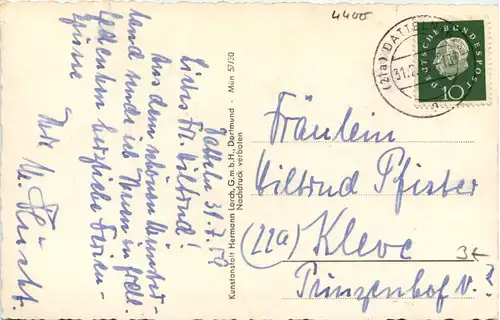 4400
(21a) DATTELN
31.7.
DEUTSCHE BUNDESPOST
10
Datteln 31.7.59
Liebes Frl. Wiltrud!
Aus dem schönen Münster-
land sende ich Ihnen in
Gedenken herzliche Ferien-
grüsse
Ihr
Kunstanstalt Hermann Lorch, G.m.b.H., Dortmund - Mün 57/30
Nachdruck verboten
Fräulein
Wiltrud Pfister
(22a) Kleve
Prinzenhof
3€